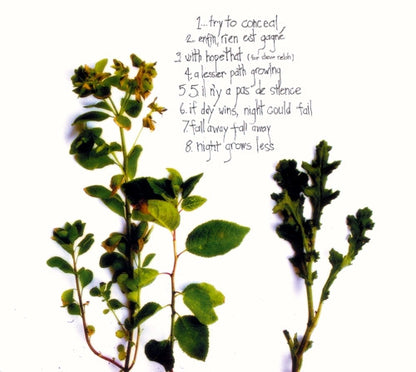 1...try to conceal
2. enfin, rien est gagné
3. with hope that (for dave
4. a lesser path growing
5 5. il n'y a pas de silence
6. if day wins, night could fall
7. fall away fall away
8. night grows less